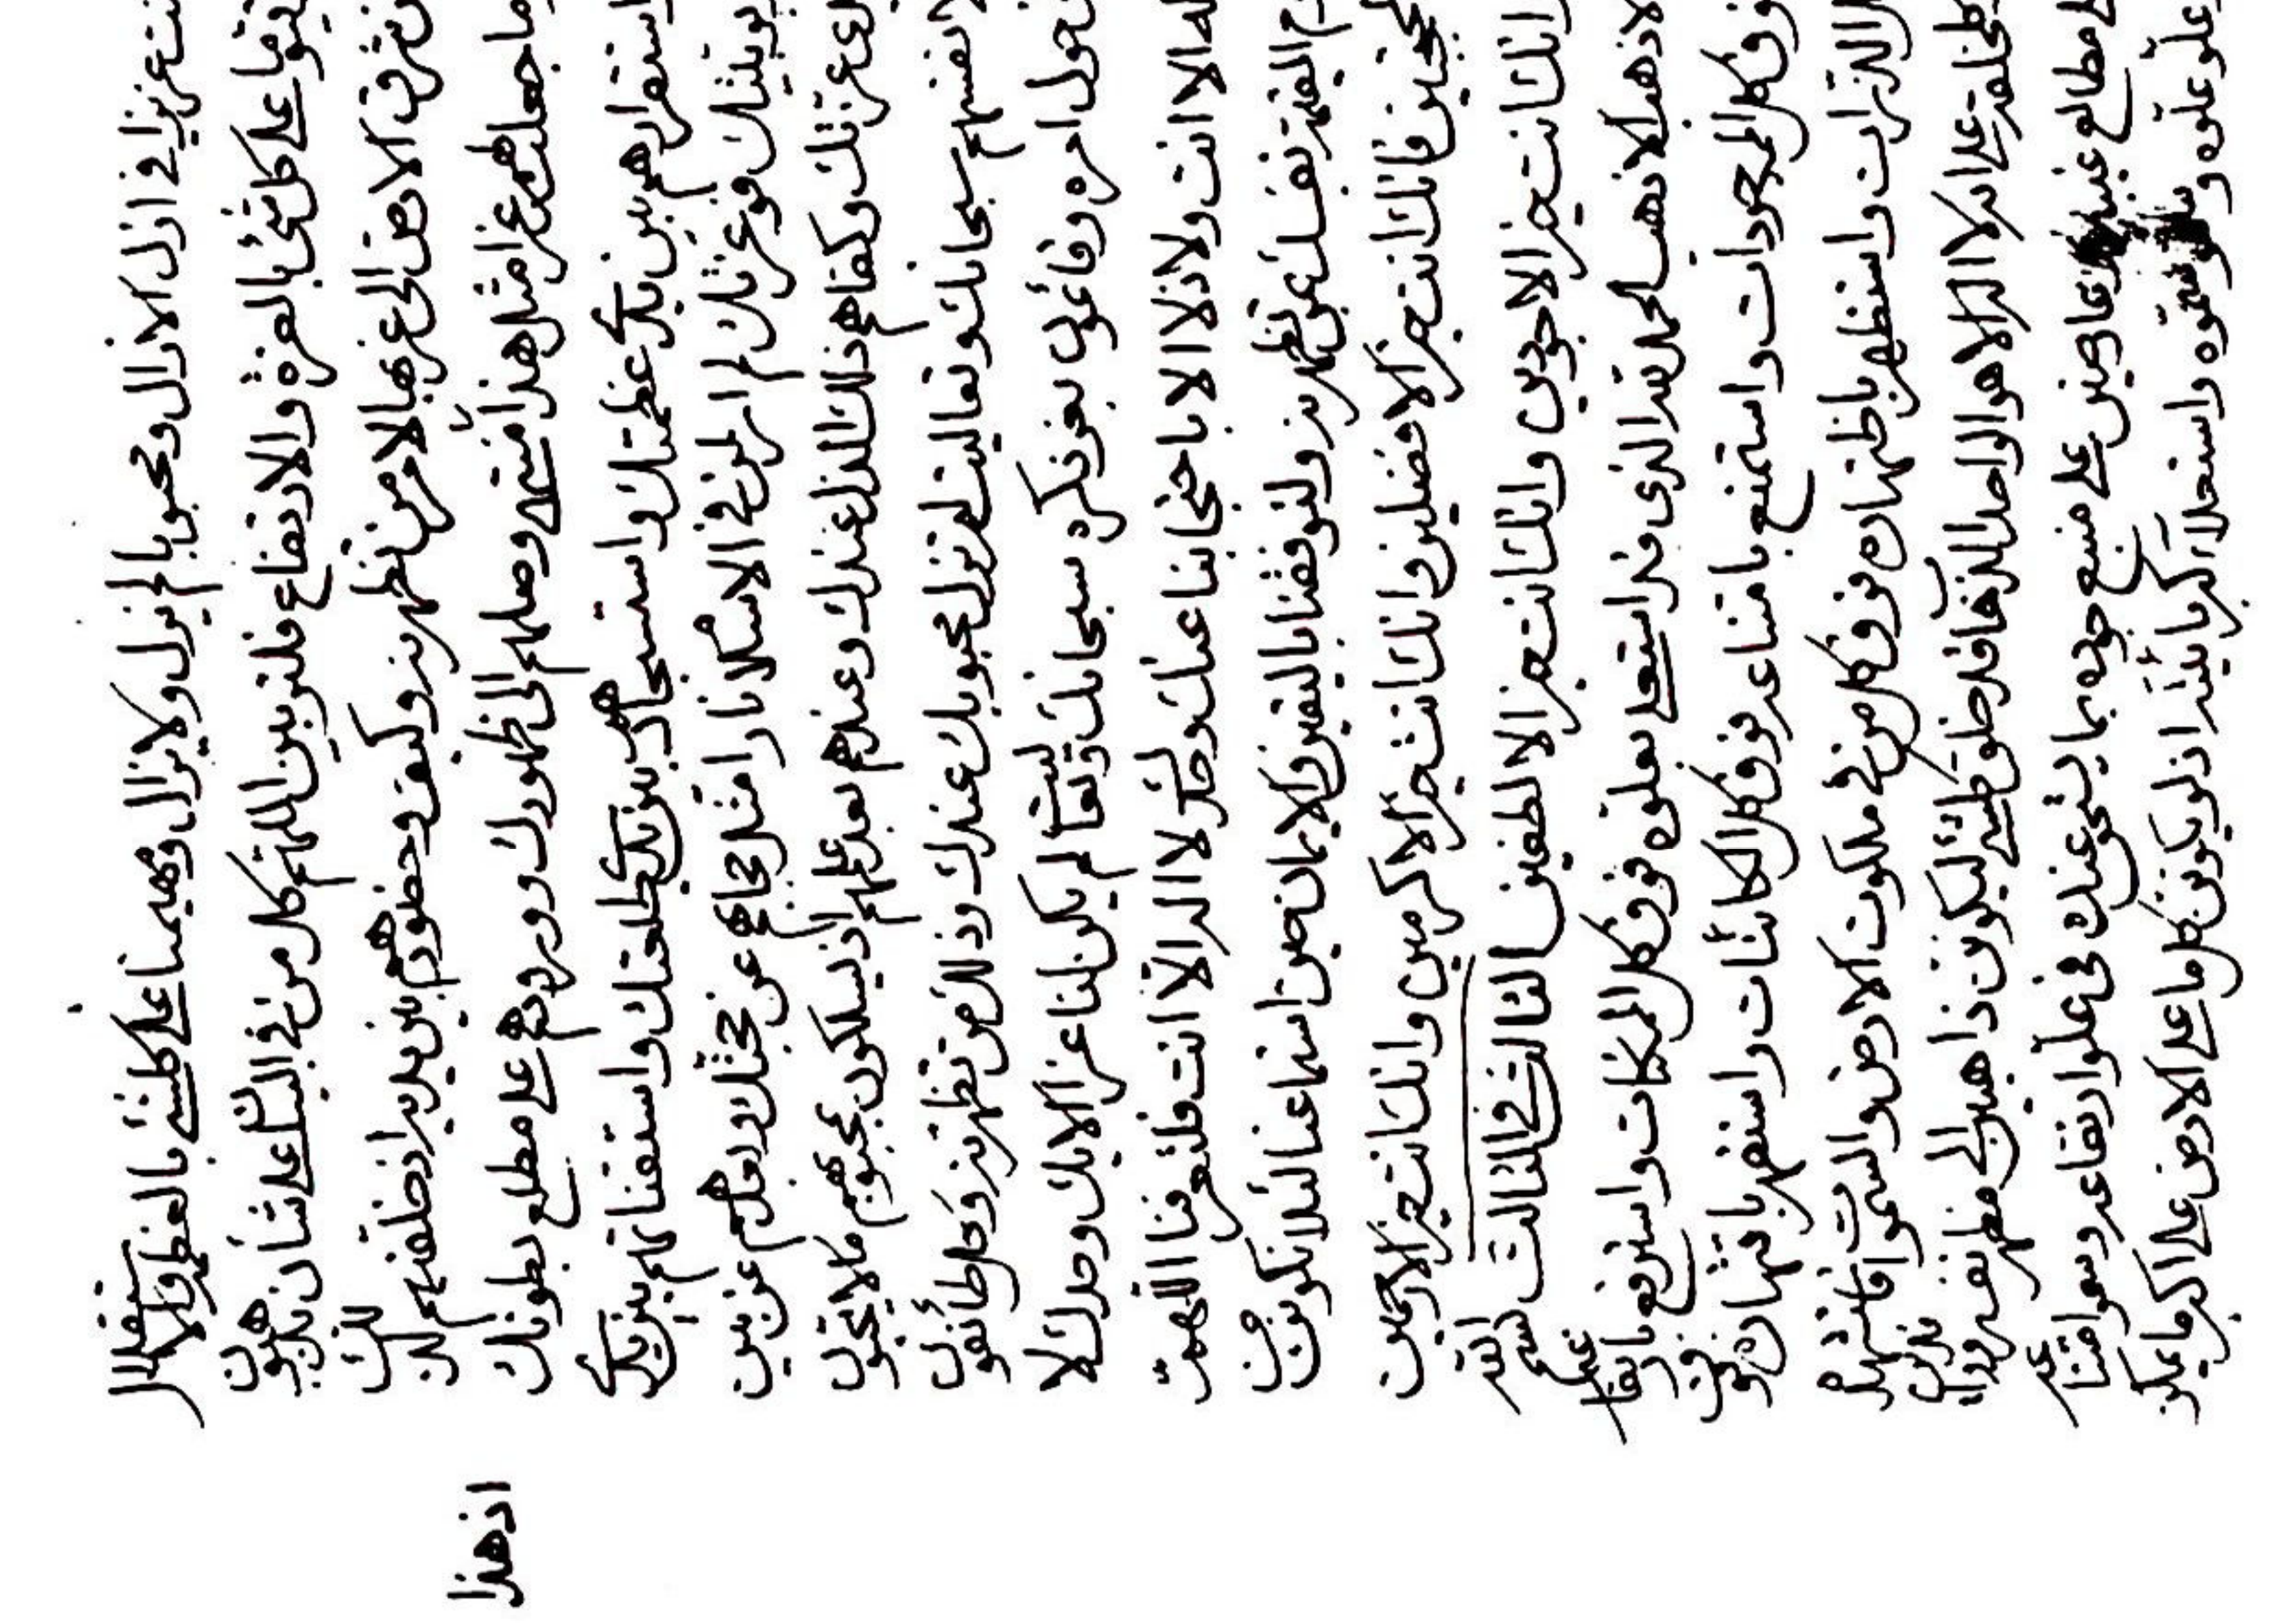 نت عزيزا في ازل الازال ومحبوبا لم تزل ولا يزال ومهيمنا على كلشيئ بالعظمة والاستقلال
يقوما على كل شئ بالعزة والارتفاع فلتربين اللهم كل من في البيان على شأن يذهبون
تشرق الارض الى غربها لامر من تظهرنه وكيف وحظوهم بين يديه اذ خلقتهم لذلك
ما جعلت لهم عزا مثل هذا اذ منتهى وصلهم الى ظهورك وورودهم على مطلع بطونك
اذ هذا
استقرارهم بين يدي عظمتك واستسجادهم بين يدي طلعتك واستغنائهم بين يدي
فوعزتك لم ار لمن في الاسلام نارا مثل احتجابهم عن حجتك وبعدهم عن بين
يدي عزتك وكفاهم ذلك الذل عندك وعندهم بعد علمهم اذ يسلكون بمحبوبهم ما لا يحبون
لانفسهم سبحانك وتعاليت لم تزل محبوبك عندك وذلك من تظهرنه وكل طائفون
حول امره وقائمون بعز ذكره سبحانك وتعاليت لم يكن لنا عز الا بك وحدك لا
له الا انت ولا ذل الا باحتجابنا عنك وحدك لا اله الا انت فلتعرفنا اللهم
يوم القيمة نفسك تظهرنه ولتوفقنا باليقين والايمان حين استماعنا لئلا نكونن من
لمحتجبين فانك انت خير الافضلين وانك انت خير الاكرمين وانك انت خير الارحمين
وانك انت خير الاجودين وانك انت خير الالطفين الثالث في الثالث بسم الله
الاذهب الاذهب الحمد لله الذي قد استعلى بعلوه فوق كل الممكنات واسترفع بارتفاعه
فوق كل الموجودات واستمنع بامتناعه فوق كل الكائنات واستقهر باقتهاره فوق
كل الذرات واستظهر باظتهاره فوق كل من في ملكوت الارض والسموات
كلخلقه على انه لا اله الا هو الواحد قد خلق كلشئ ليكونن ذاهبا الى مظهر نفسه
مطالع على منبع جوده بما ينبغي عنده في علو ارتفاعه وسمو امتناعه
علو علوه وسمو سموه واستجلال كبريائيته اذ لو يكونن كل ما على الارض على اكبر ما يمكن